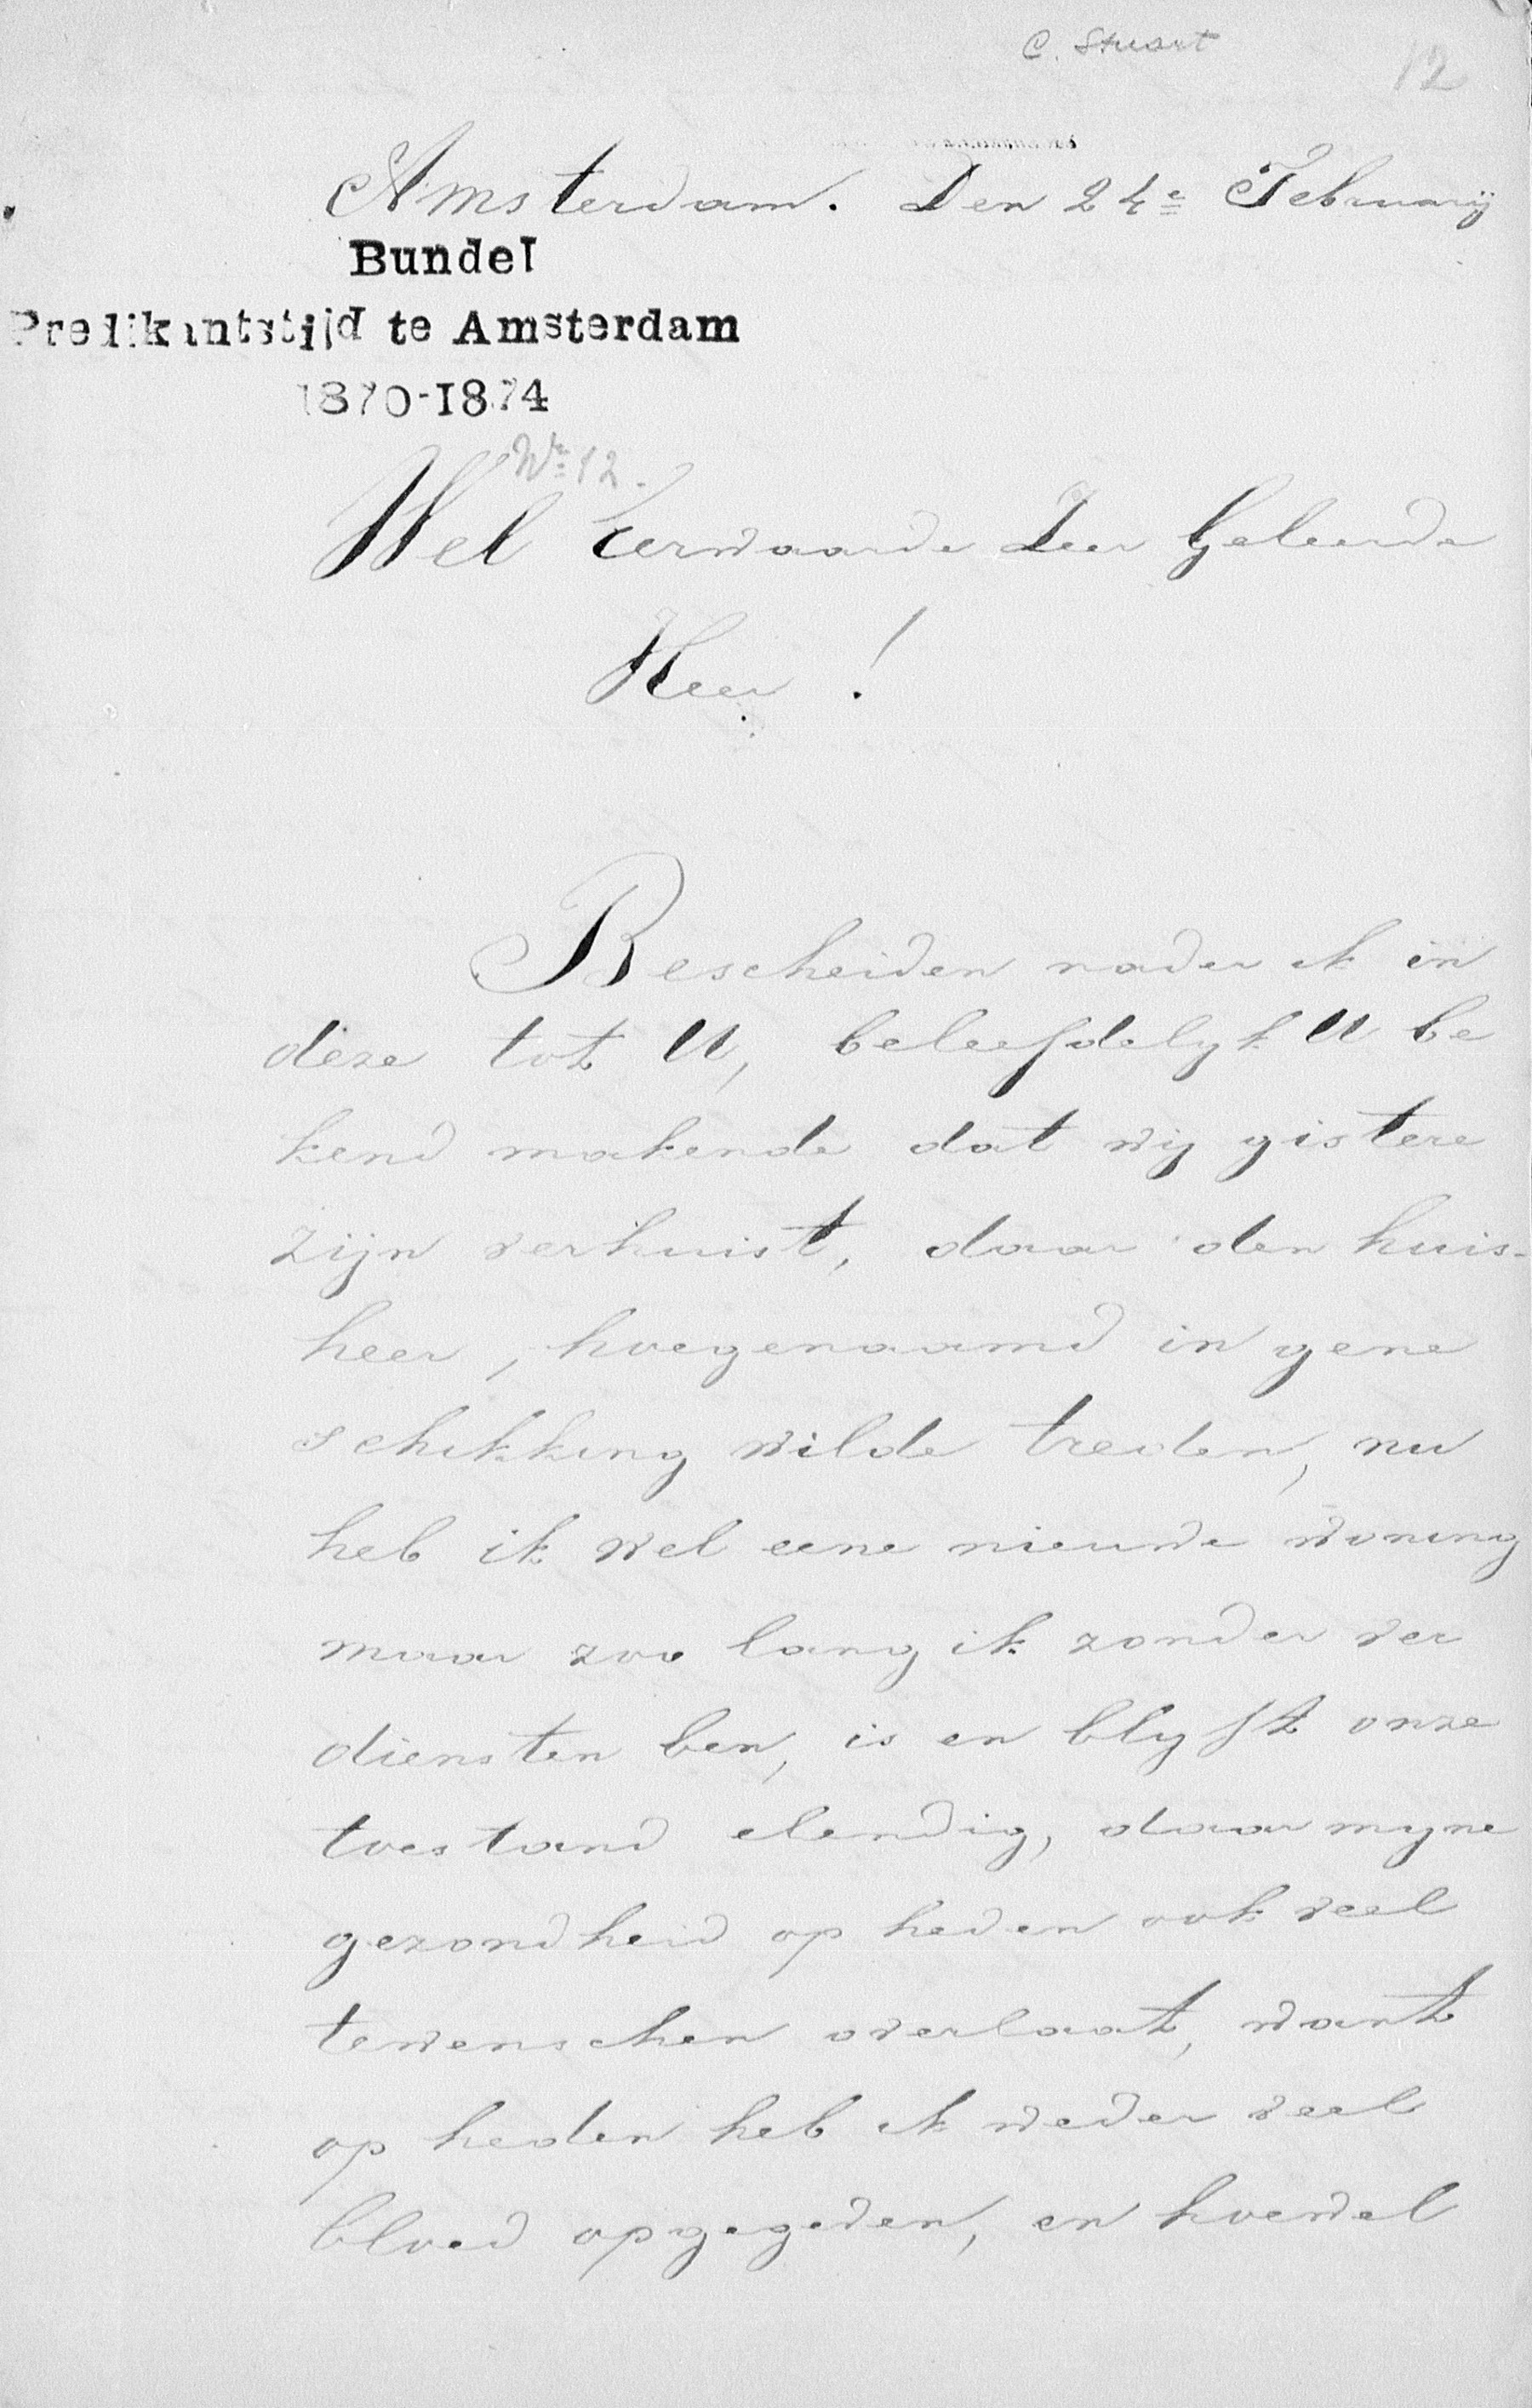 C. Stuart
12
Amsterdam. Den 24e Februarij
Bundel
Predikantstijd te Amsterdam
1870-1874
No 12.
Wel Eerwaarde Zeer Geleerde
Heer !
Bescheiden nader ik in
deze tot U, beleefdelyk U be
kend makende dat wij gistere
zijn verhuist, daar den huis-
heer, hoegenaamd in gene
schikking wilde treden, nu
heb ik wel eene nieuwe woning
maar zoo lang ik zonder ver
diensten ben, is en blyft onze
toestand elendig, daar myne
gezondheid op heden ook veel
tewenschen overlaat, want
op heden heb ik weder veel
bloed opgegeven, en hoewel